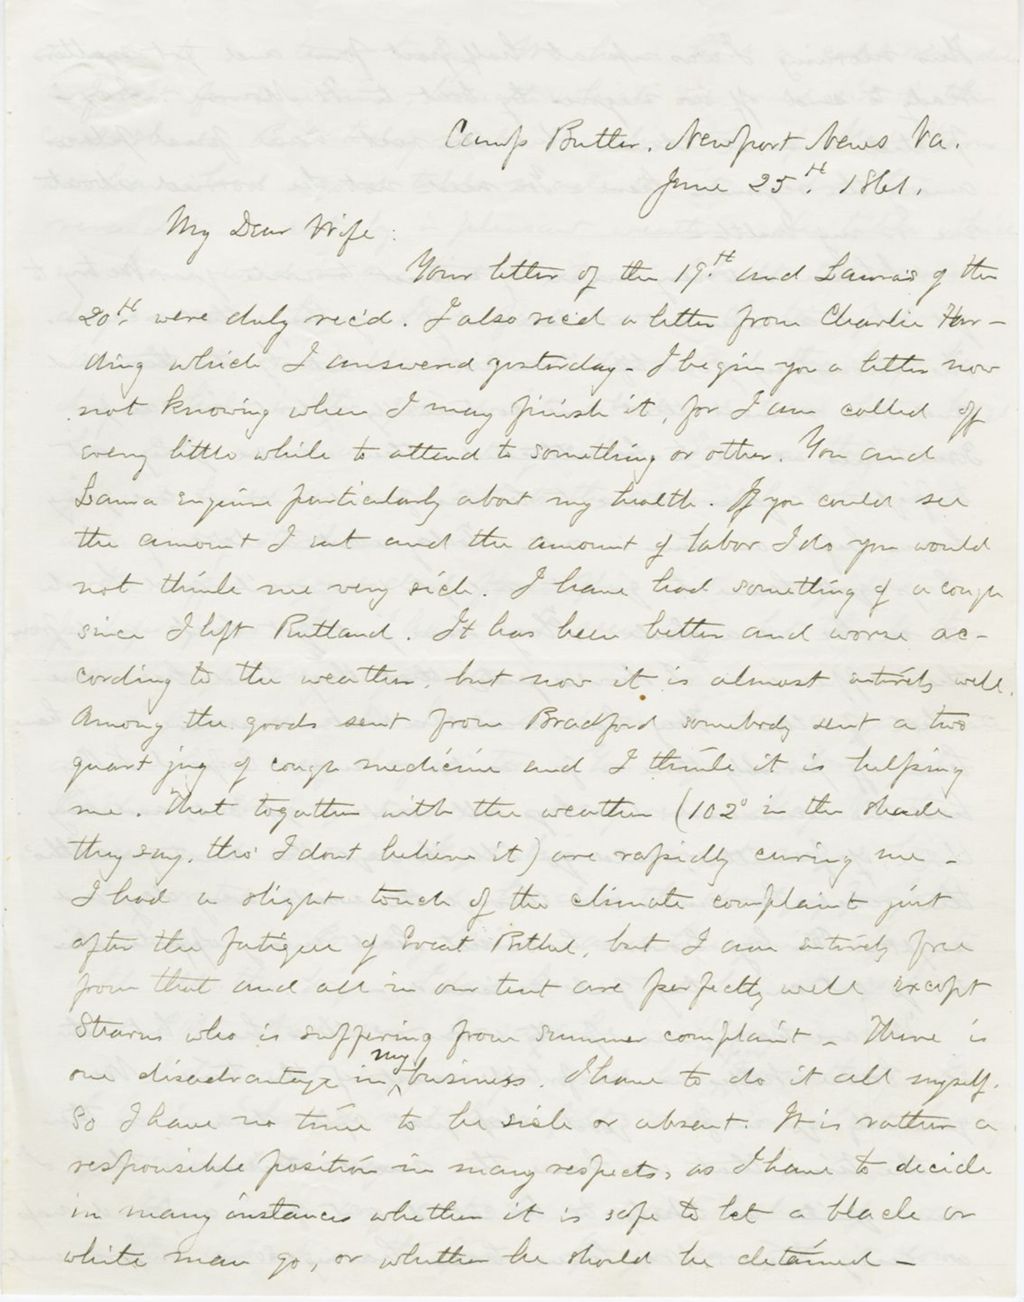 Camp Butler, Newport News Va.
June 25th. 1861.
My Dear Wife:
Your letter of the 19th and Laura's of the
20th were duly rec'd. I also rec'd a letter from Charlie Har-
ding which I answered yesterday - I begin you a letter now
not knowing when I may finish it, for I am called off
every little while to attend to something or other. You and
Laura enquire particularly about my health. If you could see
the amount I eat and the amount of labor I do you would
not think me very sick. I have had something of a cough
since I left Rutland. It has been better and worse ac-
cording to the weather, but now it is almost entirely well.
Among the goods sent from Bradford somebody sent a two
quart jug of cough medicine and I think it is helping
me. That together with the weather (102° in the shade
they say, tho' I dont believe it) are rapidly curing me -
I had a slight touch of the climate complaint just
after the fatigue of Great Bethel, but I am entirely free
from that and all in our tent are perfectly well except
Stearns who is suffering from summer complaint - There is
one disadvantage in my business. I have to do it all myself.
So I have no time to be sick or absent. It is rather a
responsible position in many respects, as I have to decide
in many instances whether it is safe to let a black or
white man go, or whether he should be detained -